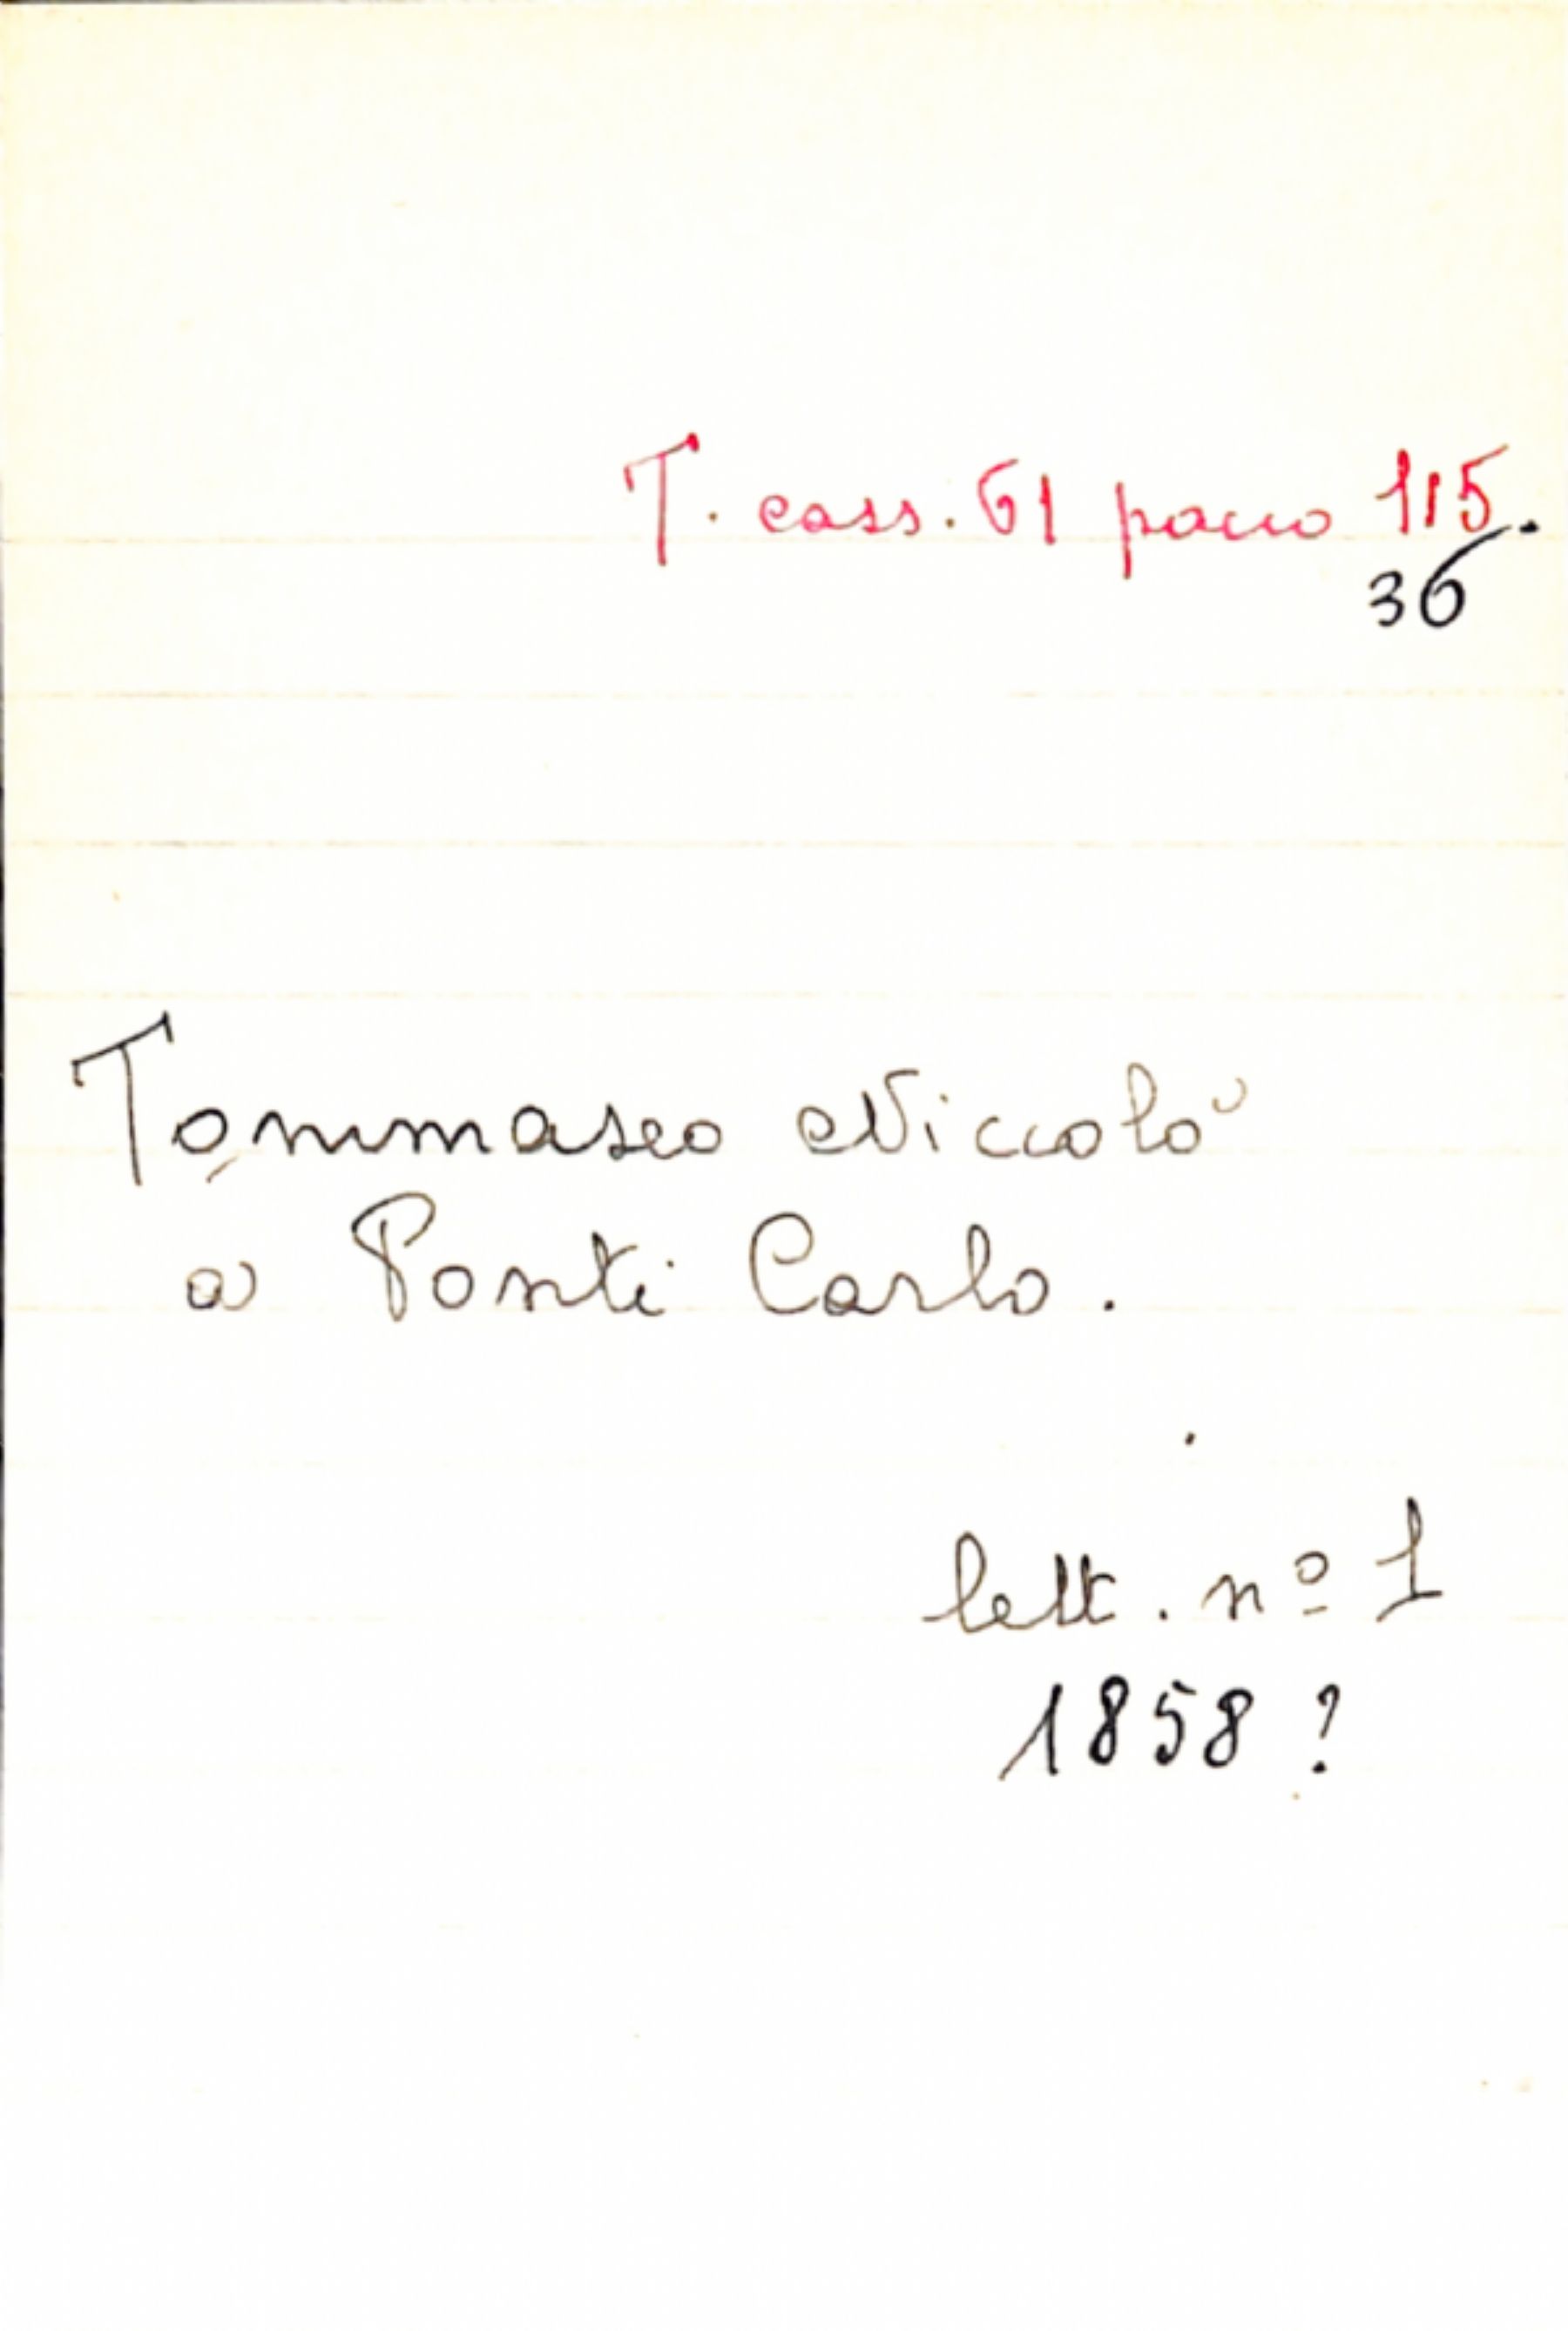 T. cass. 61 pacco 115.
36
Tommaseo Niccolò
a Ponti Carlo.
lett. nº 1
1858 ?